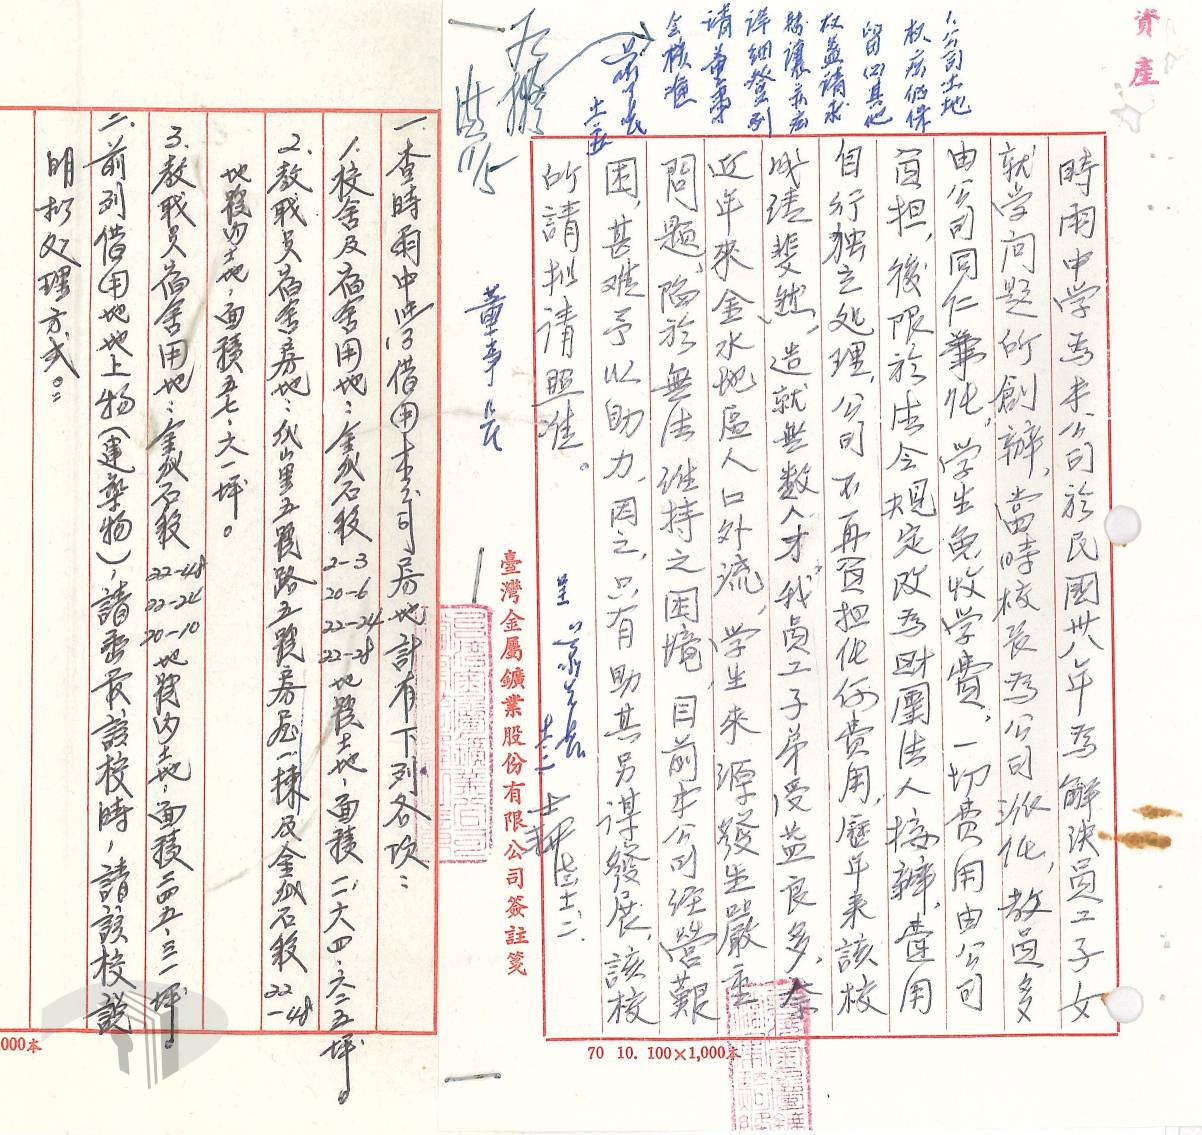 資產
1.公司土地
權應仍保
留(2)其他
權益請求
轉讓亦應
詳細登列
請董事
會核准
時雨中學為本公司於民國卅八年為解決員工子女
就学问題的創辦,當時校長為公司派任,教員多
由公司同仁兼任,学生免收学費,一切費用由公司
負担,後限於法令規定改為財團法人接辦,費用
自行独立处理,公司不再負担任何費用,歷年来該校
成績斐然,造就無数人才,我員工子弟受益良多,奈
近年來金水地區人口外流,学生來源發生嚴重
問題,陷於無法維持之困境,目前本公司经營艱
困,甚难予以助力,因之,只有助其另謀發展,該校
所請擬請照准。
呈
董事長
臺灣金屬鑛業股份有限公司簽註箋
70 10. 100×1,000本
一.查時雨中學借用本公司房地計有下列各項:
1.校舍及宿舍用地:金瓜石段2-3 20-6 22-24 22-28地號土地,面積一、六四、六二五坪。
2.教職員宿舍房地:瓜山里五號路五號房屋一棟及金瓜石段22-48
地號內土地,面積五七、六一坪。
3.教職員宿舍用地:金瓜石段22-48 22-24 20-10地號內土地,面積二四五、三一坪。
二.前列借用地地上物(建築物),請查最該校時,請該校説
明拆处理方式。
000本